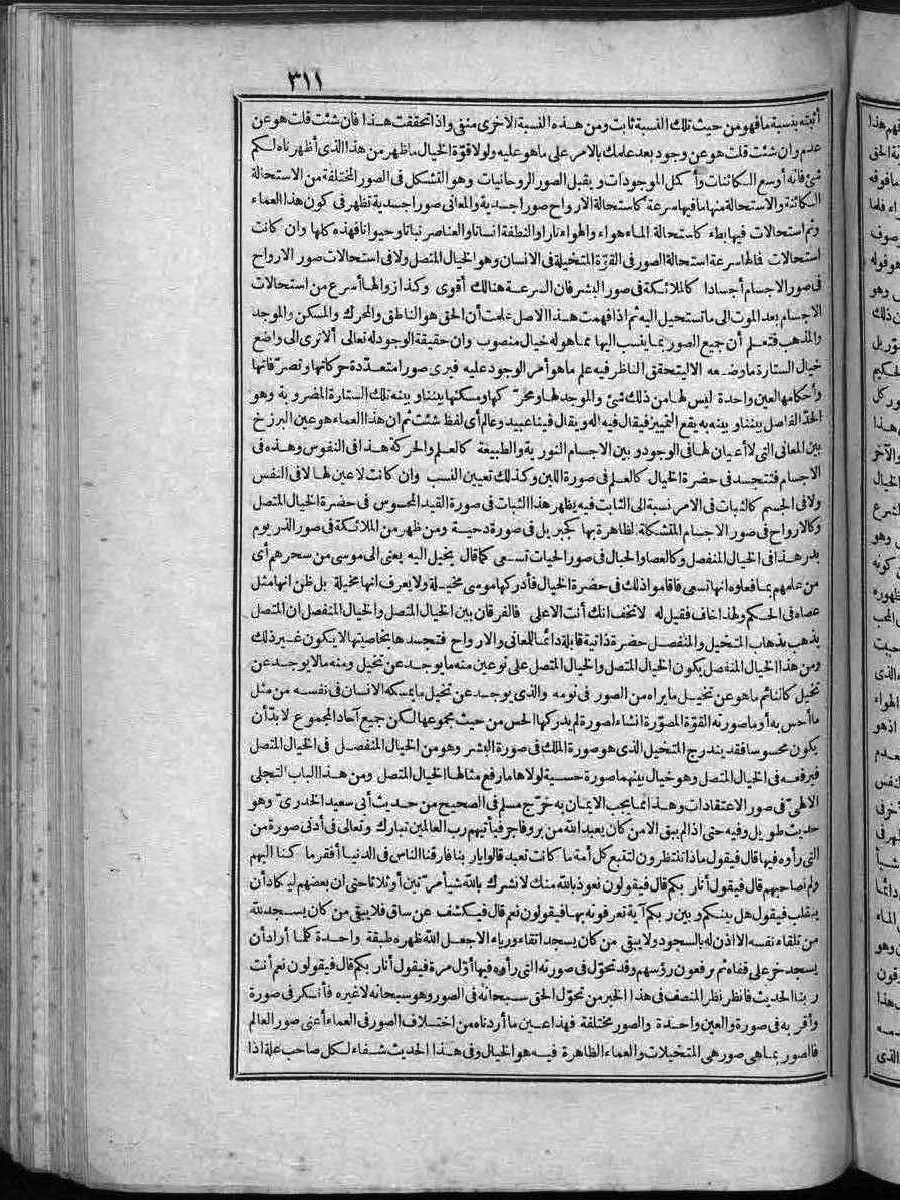 ٣١١
أثبته بنسبة ما فهو من حيث تلك النسبة ثابت ومن هذه النسبة الأخرى منفي واذا تحققت هذا فان شئت قلت هو عن
عدم وان شئت قلت هو عن وجود بعد علمك بالامر على ما هو عليه ولولا قوّة الخيال ما ظهر من هذا الذى أظهرناه لكم
شئ فانه أوسع الكائنات وأكمل الموجودات ويقبل الصور الروحانيات وهو التشكل فى الصور المختلفة من الاستحالة
الكائنة والاستحالة منها ما فيها سرعة كاستحالة الارواح صورا جسدية والمعانى صورا جسدية تظهر فى كون هذا العماء
وثم استحالات فيها بطء كاستحالة الماء هواء والهواء نارا والنطفة انسانا والعناصر نباتا وحيوانا فهذه كلها وان كانت
استحالات فالها سرعة استحالة الصور فى القوّة المتخيلة فى الانسان وهو الخيال المتصل ولا فى استحالات صور الارواح
فى صور الاجسام أجسادا كالملائكة فى صور البشر فان السرعة هنالك أقوى وكذا زوالها أسرع من استحالات
الاجسام بعد الموت الى ما تستحيل اليه ثم اذا فهمت هذا الاصل علمت أن الحق هو الناطق والمحرك والمسكن والموجد
والمذهب فتعلم أن جميع الصور بما ينسب اليها مما هو له خيال منصوب وان حقيقة الوجود له تعالى ألا ترى الى واضع
خيال الستارة ما وضعه الا ليتحقق الناظر فيه علم ما هو أمر الوجود عليه فيرى صورا متعدّدة حركاتها وتصرّفاتها
وأحكامها لعين واحدة ليس لها من ذلك شئ والموجد لها ومحرّكها ومسكنها بيننا وبينه تلك الستارة المضروبة وهو
الحدّ الفاصل بيننا وبينه به يقع التمييز فيقال فيه اله ويقال فينا عبيد وعالم أى لفظ شئت ثم ان هذا العماء هو عين البرزخ
بين المعانى التى لا أعيان لها فى الوجود وبين الاجسام النورية والطبيعة كالعلم والحركة هذا فى النفوس وهذه فى
الاجسام فتتجسد فى حضرة الخيال كالعلم فى صورة اللبن وكذلك تعيين النسب وان كانت لا عين لها لا فى النفس
ولا فى الجسم كالثبات فى الامر نسبة الى الثابت فيه يظهر هذا الثبات فى صورة القيد المحسوس فى حضرة الخيال المتصل
وكالارواح فى صور الاجسام المتشكلة لظاهرة بها كجبريل فى صورة دحية ومن ظهر من الملائكة فى صور الذر يوم
بدر هذا فى الخيال المنفصل وكالعصا والحبال فى صور الحيات تسعى كما قال يخيل اليه يعنى الى موسى من سحرهم أى
من علمهم بما فعلوه انها تسعى فاقاموا ذلك فى حضرة الخيال فأدركها موسى مخيلة ولا يعرف انها مخيلة بل ظن انها مثل
عصاه فى الحكم ولهذا خاف فقيل له لا تخف انك أنت الاعلى فالفرقان بين الخيال المتصل والخيال المنفصل ان المتصل
يذهب بذهاب المتخيل والمنفصل حضرة ذاتية قابلة دائما للمعانى والارواح فتجسدها بخاصيتها لا يكون غير ذلك
ومن هذا الخيال المنفصل يكون الخيال المتصل والخيال المتصل على نوعين منه ما يوجد عن تخيل ومنه ما لا يوجد عن
تخيل كالنائم ما هو عن تخيل ما يراه من الصور فى نومه والذى يوجد عن تخيل ما يمسكه الانسان فى نفسه من مثل
ما أحس به أو ما صورته القوّة المصوّرة انشاء لصورة لم يدركها الحس من حيث مجموعها لكن جميع آحاد المجموع لا بدّ أن
يكون محسوسا فقد يندرج المتخيل الذى هو صورة الملك فى صورة البشر وهو من الخيال المنفصل فى الخيال المتصل
فيرفعه فى الخيال المتصل وهو خيال بينهما صورة حسية لولاها ما رفع مثالها الخيال المتصل ومن هذا الباب التجلى
الالهىّ فى صور الاعتقادات وهذا مما يجب الايمان به خرّج مسلم فى الصحيح من حديث أبى سعيد الخدرىّ وهو
حديث طويل وفيه حتى اذا لم يبق الا من كان يعبد الله من بر وفاجر فيأتيهم رب العالمين تبارك وتعالى فى أدنى صورة من
التى رأوه فيها قال فيقول ماذا تنتظرون لتتبع كل أمة ما كانت تعبد قالوا يا ربنا فارقنا الناس فى الدنيا أفقر ما كنا اليهم
ولم نصاحبهم قال فيقول أنا ربكم قال فيقولون نعوذ بالله منك لا نشرك بالله شيأ مرّتين أو ثلاثا حتى ان بعضهم ليكاد أن
ينقلب فيقول هل بينكم وبين ربكم آية تعرفونه بها فيقولون نعم قال فيكشف عن ساق فلا يبقى من كان يسجد لله
من تلقاء نفسه الا اذن له بالسجود ولا يبقى من كان يسجد اتقاء ورياء الا جعل الله ظهره طبقة واحدة كلما أراد أن
يسجد خر على قفاه ثم يرفعون رؤسهم وقد تحوّل فى صورته التى رأوه فيها أوّل مرة فيقول أنا ربكم قال فيقولون نعم أنت
ربنا الحديث فانظر نظر المنصف فى هذا الخبر من تحوّل الحق سبحانه فى الصور وهو سبحانه لا غيره فأنكر فى صورة
وأقر به فى صورة والعين واحدة والصور مختلفة فهذا عين ما أردناه من اختلاف الصور فى العماء أعنى صور العالم
فالصور بما هى صور هى المتخيلات والعماء الظاهرة فيه هو الخيال وفى هذا الحديث شفاء لكل صاحب علة اذا